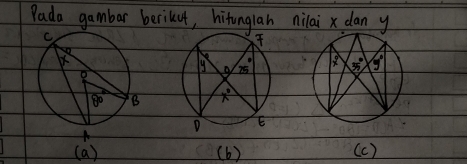 Pada gambar berikut, hitunglah nilai x dan y
C
x°
O
80°
B
A
(a)
F
y°
75°
x°
D
E
(b)
x°
35°
y°
(c)